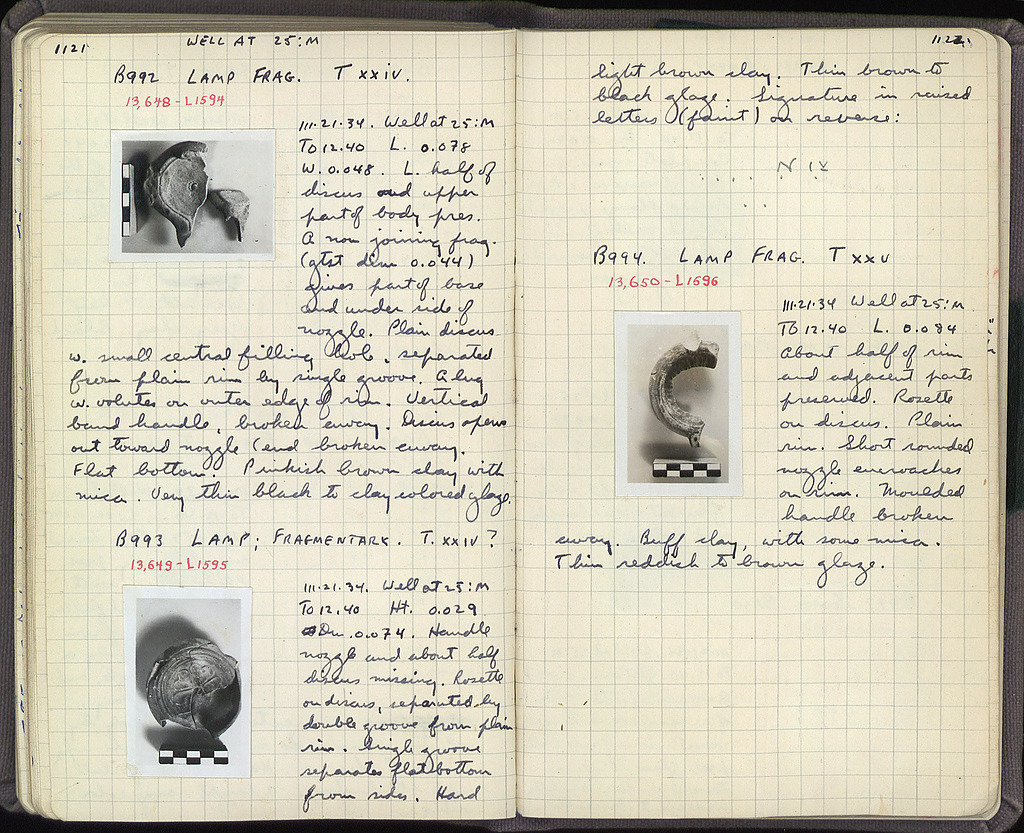 1121
WELL AT 25:M
B992 LAMP FRAG. T XXIV.
13,648 - L1594
III.21.34. Well at 25:M
To 12.40 L. 0.078
W. 0.048. L. half of
discus and upper
part of body pres.
A non joining frag.
(gtst dim 0.044)
gives part of base
and under side of
nozzle. Plain discus
w. small central filling hole, separated
from plain rim by single groove. A lug
w. volutes on outer edge of rim. Vertical
band handle, broken away. Discus opens
out toward nozzle (end broken away.
Flat bottom. Pinkish brown clay with
mica. Very thin black to clay colored glaze.
B993 LAMP; FRAGMENTARY. T. XXIV?
13,649 - L1595
III.21.34. Well at 25:M
To 12.40 Ht. 0.029
Dm. 0.074. Handle
nozzle and about half
discus missing. Rosette
on discus, separated by
double groove from plain
rim. Single groove
separates flat bottom
from sides. Hard
1122.
light brown clay. Thin brown to
black glaze. Signature in raised
letters (faint) on reverse:
B994. LAMP FRAG. T XXV
13,650 - L1596
III.21.34 Well at 25:M
To 12.40 L. 0.084
About half of rim
and adjacent parts
preserved. Rosette
on discus. Plain
rim. Short rounded
nozzle encroaches
on rim. Moulded
handle broken
away. Buff clay, with some mica.
Thin reddish to brown glaze.